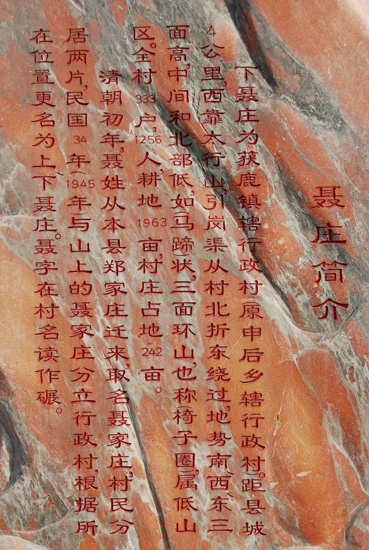 聂庄简介
下聂庄为获鹿镇辖行政村(原申后乡辖行政村)。距县城
4公里,西靠太行山,引岗渠从村北折东绕过,地势南、西、东三
面高,中间和北部低,如马蹄状,三面环山也称椅子圈,属低山
区。全村333户,1256人,耕地1963亩,村庄占地242亩。
清朝初年,聂姓从本县郑家庄迁来,取名聂家庄,村民分
居两片,民国34年(1945年)与山上的聂家庄分立行政村,根据所
在位置更名为上、下聂庄。聂字在村名读作碾。